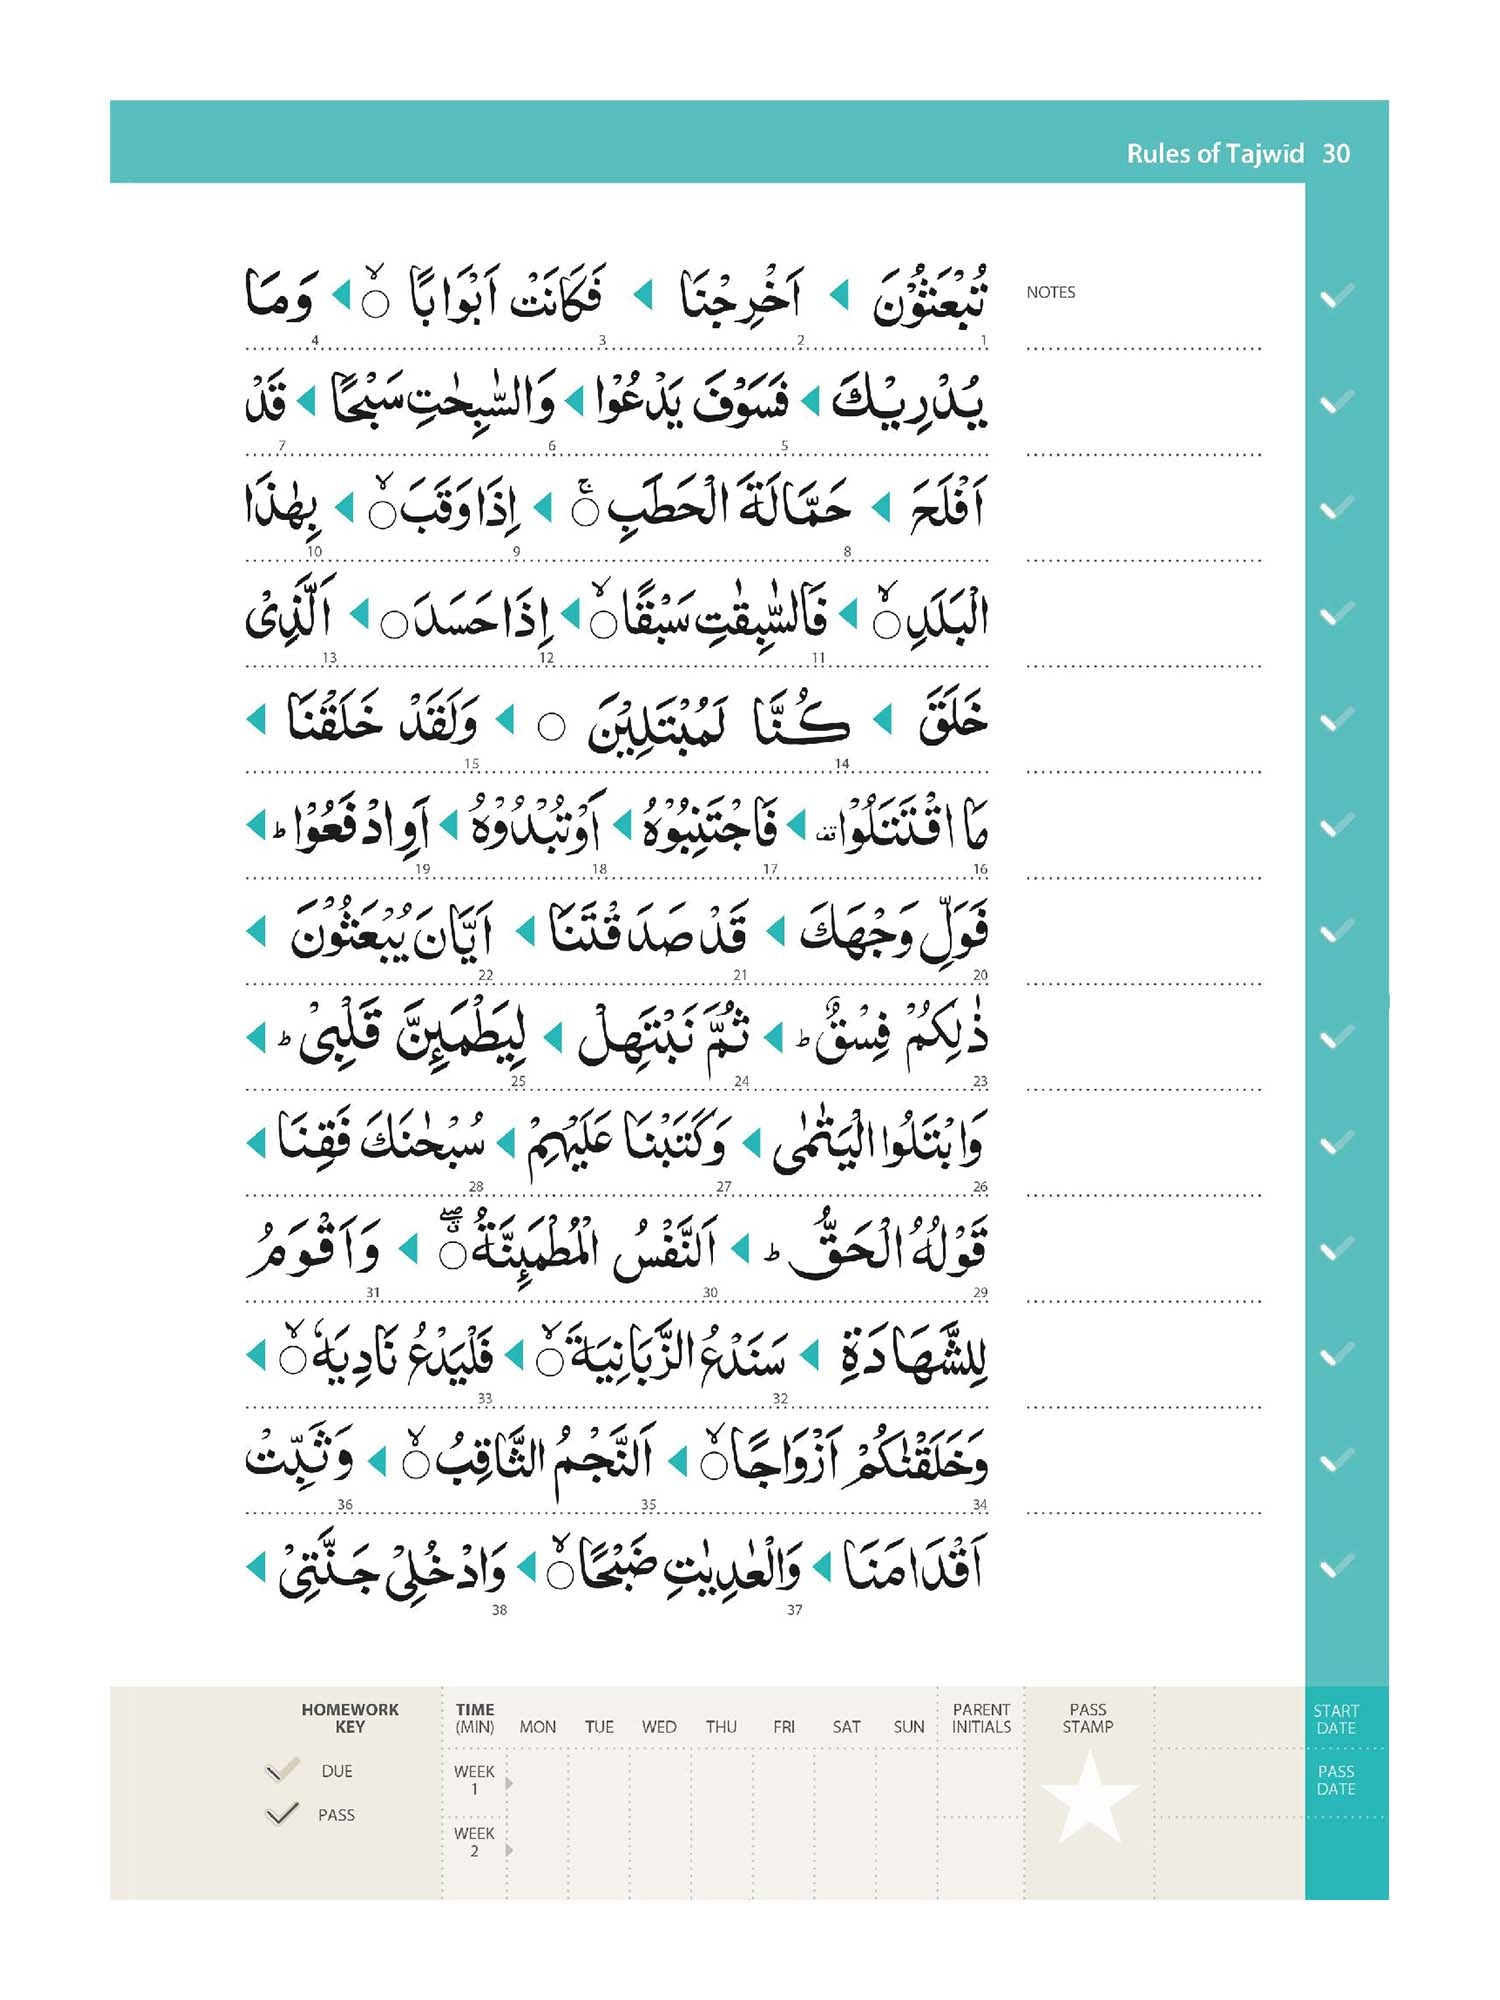 Rules of Tajwīd 30
تُبْعَثُوْنَ اَخْرِجْنَا فَكَانَتْ اَبْوَابًا ۙ○ وَمَا
NOTES
1 2 3 4
يُدْرِيْكَ فَسَوْفَ يَدْعُوْا وَالسّٰبِحٰتِ سَبْحًا قَدْ
5 6 7
اَفْلَحَ حَمَّالَةَ الْحَطَبِ ۚ○ اِذَا وَقَبَ ۙ○ بِهٰذَا
8 9 10
الْبَلَدِ ۙ○ فَالسّٰبِقٰتِ سَبْقًا ۙ○ اِذَا حَسَدَ ○ اَلَّذِىْ
11 12 13
خَلَقَ كُنَّا لَمُبْتَلِيْنَ ○ وَلَقَدْ خَلَقْنَا
14 15
مَا اقْتَتَلُوْا قف فَاجْتَنِبُوْهُ اَوْ تُبْدُوْهُ اَوِ ادْفَعُوْا ؕ
16 17 18 19
فَوَلِّ وَجْهَكَ قَدْ صَدَقْتَنَا اَيَّانَ يُبْعَثُوْنَ
20 21 22
ذٰلِكُمْ فِسْقٌ ؕ ثُمَّ نَبْتَهِلْ لِيَطْمَئِنَّ قَلْبِىْ ؕ
23 24 25
وَابْتَلُوا الْيَتٰمٰى وَكَتَبْنَا عَلَيْهِمْ سُبْحٰنَكَ فَقِنَا
26 27 28
قَوْلُهُ الْحَقُّ ؕ اَلنَّفْسُ الْمُطْمَئِنَّةُ ۖ○ وَاَقْوَمُ
29 30 31
لِلشَّهَادَةِ سَنَدْعُ الزَّبَانِيَةَ ۙ○ فَلْيَدْعُ نَادِيَهٗ ۙ○
32 33
وَخَلَقْنٰكُمْ اَزْوَاجًا ۙ○ اَلنَّجْمُ الثَّاقِبُ ۙ○ وَثَبِّتْ
34 35 36
اَقْدَامَنَا وَالْعٰدِيٰتِ ضَبْحًا ۙ○ وَادْخُلِىْ جَنَّتِىْ
37 38
HOMEWORK KEY
DUE
PASS
TIME (MIN) MON TUE WED THU FRI SAT SUN PARENT INITIALS PASS STAMP START DATE
WEEK 1
PASS DATE
WEEK 2